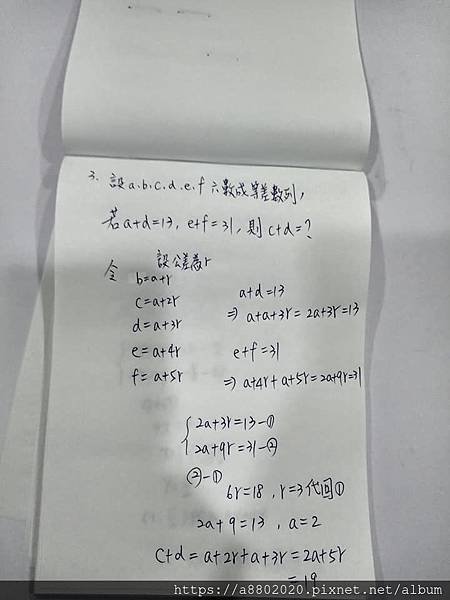 3. 設a、b、c、d、e、f 六數成等差數列,
若a+d=13, e+f=31, 則 c+d=?
令 設公差為r
b=a+r
c=a+2r
d=a+3r
e=a+4r
f=a+5r
a+d=13
⇒ a+a+3r=2a+3r=13
e+f=31
⇒ a+4r+a+5r=2a+9r=31
2a+3r=13-①
2a+9r=31-②
②-①
6r=18, r=3代回①
2a+9=13, a=2
c+d=a+2r+a+3r=2a+5r
=19
https://a8802020.pixnet.net/album